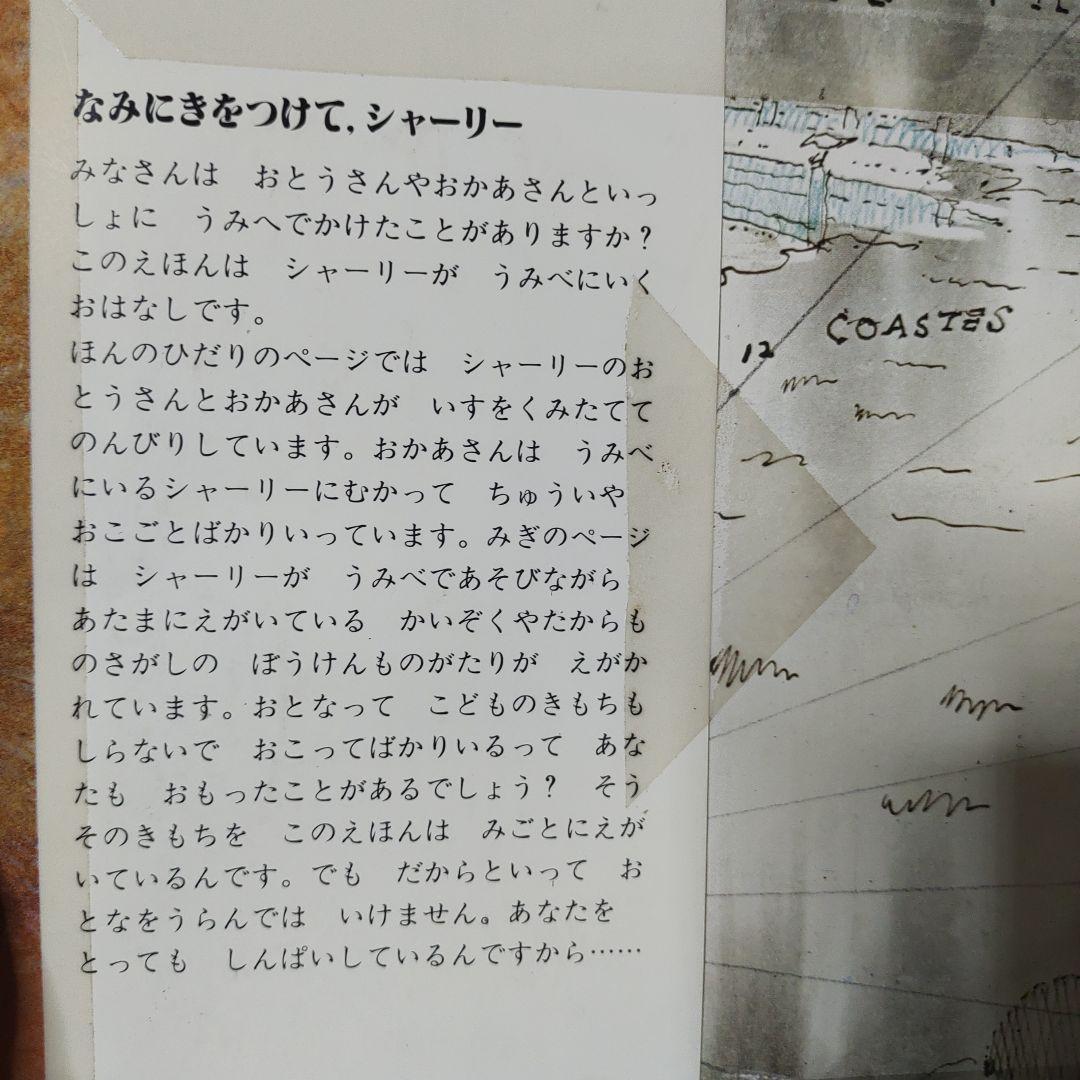 なみにきをつけて,シャーリー
みなさんは　おとうさんやおかあさんといっ
しょに　うみへでかけたことがありますか？
このえほんは　シャーリーが　うみべにいく
おはなしです。
ほんのひだりのページでは　シャーリーのお
とうさんとおかあさんが　いすをくみたてて
のんびりしています。おかあさんは　うみべ
にいるシャーリーにむかって　ちゅういや
おこごとばかりいっています。みぎのページ
は　シャーリーが　うみべであそびながら
あたまにえがいている　かいぞくやたからも
のさがしの　ぼうけんものがたりが　えがか
れています。おとなって　こどものきもちも
しらないで　おこってばかりいるって　あな
たも　おもったことがあるでしょう？　そう
そのきもちを　このえほんは　みごとにえが
いているんです。でも　だからといって　お
となをうらんでは　いけません。あなたを
とっても　しんぱいしているんですから……
COASTES
12